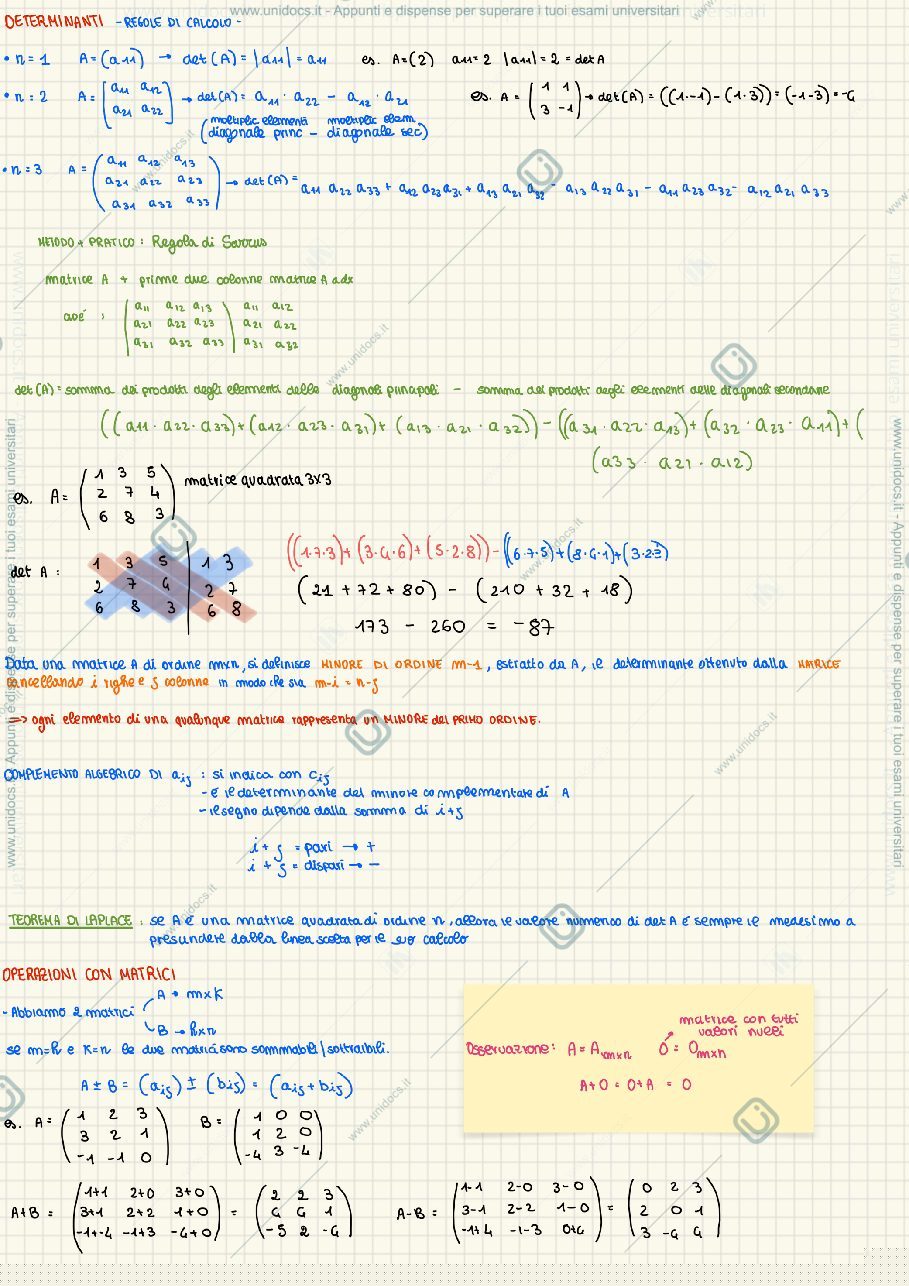 www.unidocs.it - Appunti e dispense per superare i tuoi esami universitari
DETERMINANTI - REGOLE DI CALCOLO -
• n = 1 A = (a11) → det (A) = |a11| = a11 es. A = (2) a11 = 2 |a11| = 2 = det A
• n = 2 A = [a11 a12
a21 a22] → det (A) = a11 · a22 - a12 · a21 es. A = (1 1
3 -1) → det (A) = ((1·-1) - (1·3)) = (-1-3) = -4
(moltiplic elementi diagonale princ - moltiplic elem. diagonale sec)
• n = 3 A = (a11 a12 a13
a21 a22 a23
a31 a32 a33) → det (A) = a11 a22 a33 + a12 a23 a31 + a13 a21 a32 - a13 a22 a31 - a11 a23 a32 - a12 a21 a33
METODO + PRATICO : Regola di Sarrus
matrice A + prime due colonne matrice A a dx
cioè : (a11 a12 a13 | a11 a12
a21 a22 a23 | a21 a22
a31 a32 a33 | a31 a32
det (A) = somma dei prodotti degli elementi delle diagonali principali - somma dei prodotti degli elementi delle diagonali secondarie
((a11 · a22 · a33) + (a12 · a23 · a31) + (a13 · a21 · a32)) - ((a31 · a22 · a13) + (a32 · a23 · a11) + (
(a33 · a21 · a12)
es. A = (1 3 5
2 7 4
6 8 3) matrice quadrata 3x3
det A : 1 3 5 | 1 3
2 7 4 | 2 7
6 8 3 | 6 8
((1·7·3) + (3·4·6) + (5·2·8)) - ((6·7·5) + (8·4·1) + (3·2·3)
(21 + 72 + 80) - (210 + 32 + 18)
173 - 260 = -87
Data una matrice A di ordine mxn, si definisce MINORE DI ORDINE m-1, estratto da A, il determinante ottenuto dalla MATRICE
cancellando i righe e j colonne in modo che sia m-i = n-j
=> ogni elemento di una qualunque matrice rappresenta un MINORE del PRIMO ORDINE.
COMPLEMENTO ALGEBRICO DI aij : si indica con cij
- è il determinante del minore complementare di A
- il segno dipende dalla somma di i+j
i + j = pari → +
i + j = dispari → -
TEOREMA DI LAPLACE : se A è una matrice quadrata di ordine n, allora il valore numerico di det A è sempre il medesimo a
presundere dalla linea scelta per il suo calcolo
OPERAZIONI CON MATRICI
- Abbiamo 2 matrici A → mxk
B → hxn
se m=h e k=n le due matrici sono sommabili/sottraibili.
A ± B = (aij) ± (bij) = (aij + bij)
matrice con tutti
valori nulli
Osservazione: A = Amxn O = Omxn
A+O = O+A = O
es. A = (1 2 3
3 2 1
-1 -1 0) B = (1 0 0
1 2 0
-4 3 -4)
A+B = (1+1 2+0 3+0
3+1 2+2 1+0
-1+-4 -1+3 -4+0) = (2 2 3
4 4 1
-5 2 -4)
A-B = (1-1 2-0 3-0
3-1 2-2 1-0
-1+4 -1-3 0+4) = (0 2 3
2 0 1
3 -4 4)